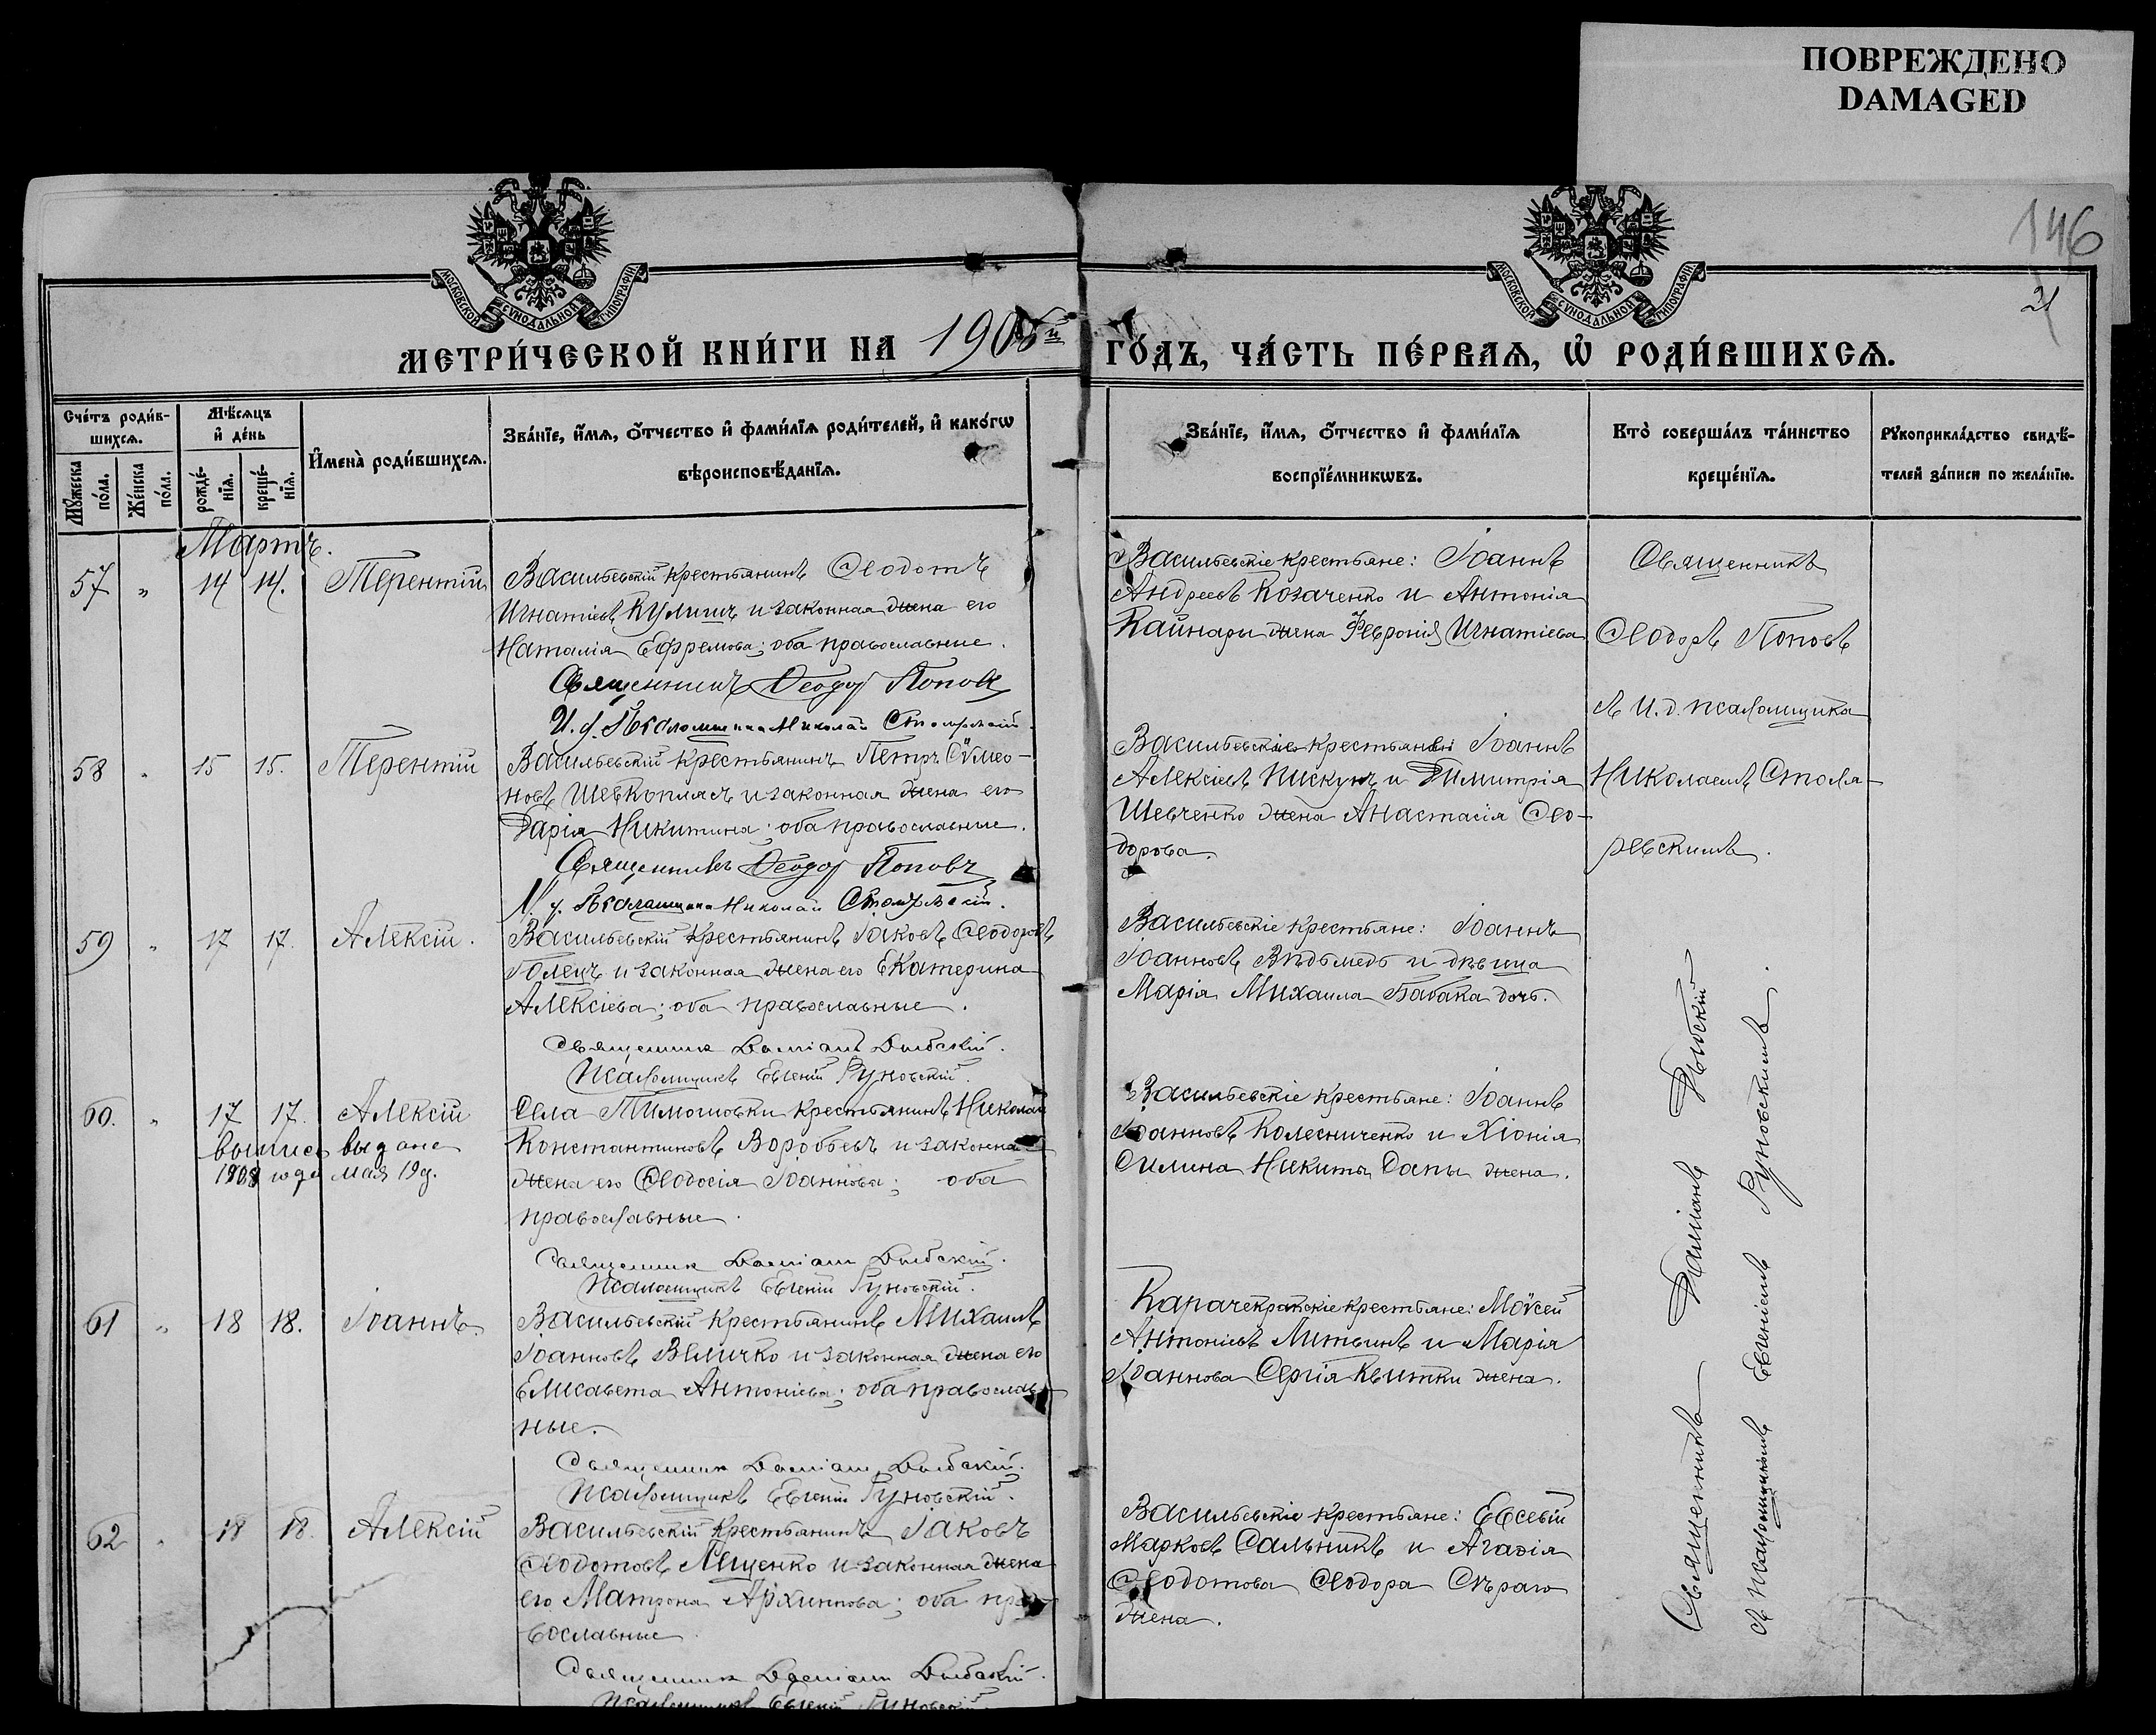 ПОВРЕЖДЕНО
DAMAGED
146
21
МОСКОВСКОЙ СѴНОДАЛЬНОЙ ТИПОГРАФІИ
МОСКОВСКОЙ СѴНОДАЛЬНОЙ ТИПОГРАФІИ
МЕТРИ́ЧЕСКОЙ КНИ́ГИ НА 190 й ГО́ДЪ, ЧА́СТЬ ПЕ́РВАѦ, Ѡ҆ РОДИ́ВШИХСѦ.
Сче́тъ роди́в-
шихсѧ.
Мꙋ́жеска по́ла.
Же́нска по́ла.
Мѣ́сѧцъ
и҆ де́нь
рожде́-
нїѧ.
креще́-
нїѧ.
И҆мена̀ роди́вшихсѧ.
Зва́нїе, и҆́мѧ, ѻ҆́тчество и҆ фами́лїѧ роди́телей, и҆ како́гѡ
вѣроисповѣ́данїѧ.
Зва́нїе, и҆́мѧ, ѻ҆́тчество и҆ фами́лїѧ
воспрїе́мникѡвъ.
Кто̀ соверша́лъ та́инство
креще́нїѧ.
Рꙋкоприкла́дство свидѣ́-
телей за́писи по жела́нїю.
Мартъ.
57 " 14 14. Терентій
Васильевскій крестьянинъ Ѳеодотъ
Игнатіевъ Кулишъ и законная жена его
Наталія Ефремова; оба православные.
Священникъ Ѳеодоръ Поповъ
И. д. Псаломщика Николай
Васильевскіе крестьяне: Іоаннъ
Андреевъ Козаченко и Антонія
Кайнары жена Февронія Игнатіева
Священникъ
Ѳеодоръ Поповъ
съ И. д. псаломщика
Николаемъ Столя-
ревскимъ.
58 " 15 15. Терентій
Васильевскій крестьянинъ Петръ Сѵмео-
новъ Шевкоплясъ и законная жена его
Дарія Никитина; оба православные.
Священникъ Ѳеодоръ Поповъ
И. д. Псаломщика Николай
Васильевскіе крестьяне Іоаннъ
Алексіевъ Пискунъ и Димитрія
Шевченко жена Анастасія Ѳео-
дорова.
59 " 17 17. Алексій.
Васильевскій крестьянинъ Іаковъ Ѳеодоровъ
Голецъ и законная жена его Екатерина
Алексіева; оба православные.
Священникъ Даміанъ Дыбскій.
Псаломщикъ Евгеній Руновскій.
Васильевскіе крестьяне: Іоаннъ
Іоанновъ Вѣдьмедь и дѣвица
Марія Михаила Бабака дочь.
60. " 17 17. Алексій
выпись выдана
1908 года мая 19 д.
Села Тимошовки крестьянинъ Николай
Константиновъ Воробьевъ и законная
жена его Ѳеодосія Іоаннова; оба
православные.
Священникъ Даміанъ Дыбскій.
Псаломщикъ Евгеній Руновскій.
Васильевскіе крестьяне: Іоаннъ
Іоанновъ Колесниченко и Хіонія
Силина Никиты Цапы жена.
61 " 18 18. Іоаннъ
Васильевскій крестьянинъ Михаилъ
Іоанновъ Величко и законная жена его
Елисавета Антоніева; оба православ-
ные.
Священникъ Даміанъ Дыбскій.
Псаломщикъ Евгеній Руновскій.
Карачекракскіе крестьяне: Моѵсей
Антоніевъ Литвинъ и Марія
Іоаннова Сергія Квитки жена.
62 " 18 18. Алексій
Васильевскій крестьянинъ Іаковъ
Ѳеодотовъ Лещенко и законная жена
его Матрона Архиппова; оба пра-
вославные
Священникъ Даміанъ Дыбскій.
Псаломщикъ Евгеній Руновскій.
Васильевскіе крестьяне: Евсевій
Марковъ Сальникъ и Агаѳія
Ѳеодотова Ѳеодора Сѣраго
жена.
Священникъ Даміанъ Дыбскій
съ псаломщикомъ Евгеніемъ Руновскимъ.